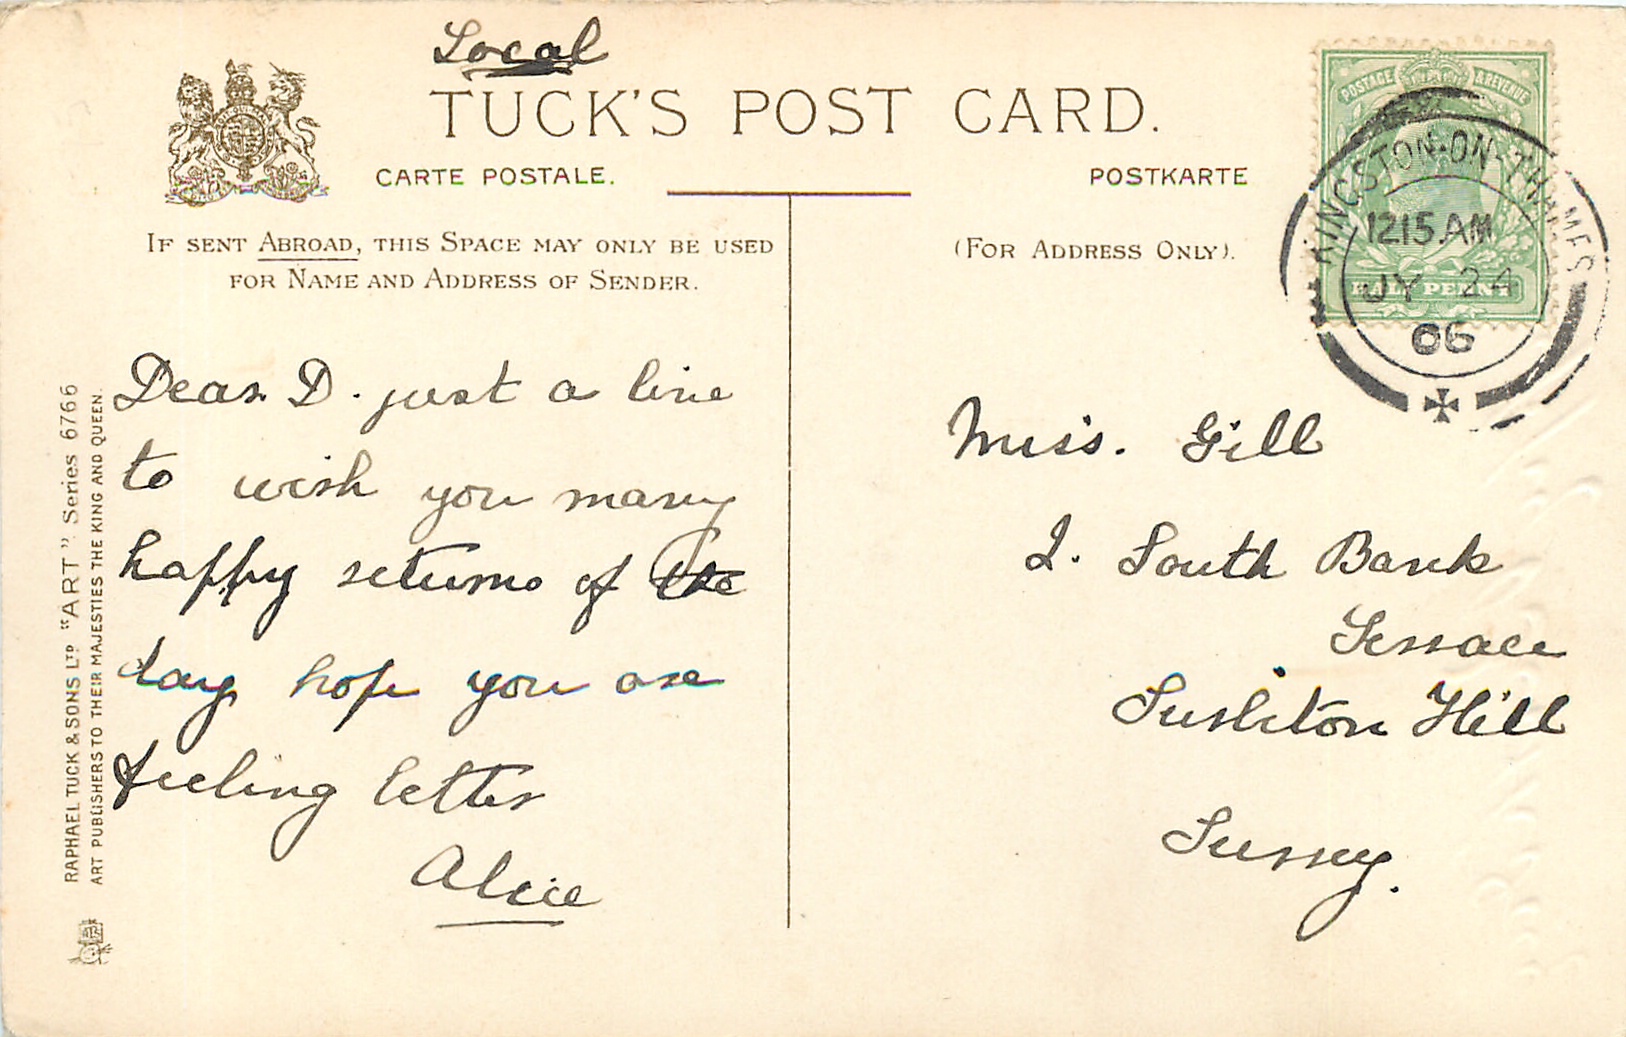 Local
TUCK'S POST CARD.
CARTE POSTALE.
POSTKARTE
IF SENT ABROAD, THIS SPACE MAY ONLY BE USED
FOR NAME AND ADDRESS OF SENDER.
(FOR ADDRESS ONLY).
POSTAGE & REVENUE
HALF PENNY
KINGSTON-ON-THAMES
12 15 AM
JY 24
06
RAPHAEL TUCK & SONS LTD "ART" Series 6766
ART PUBLISHERS TO THEIR MAJESTIES THE KING AND QUEEN.
Dear D. just a line
to wish you many
happy returns of the
day hope you are
feeling better
Alice
Miss. Gill
2. South Bank
Terrace
Surbiton Hill
Surrey.